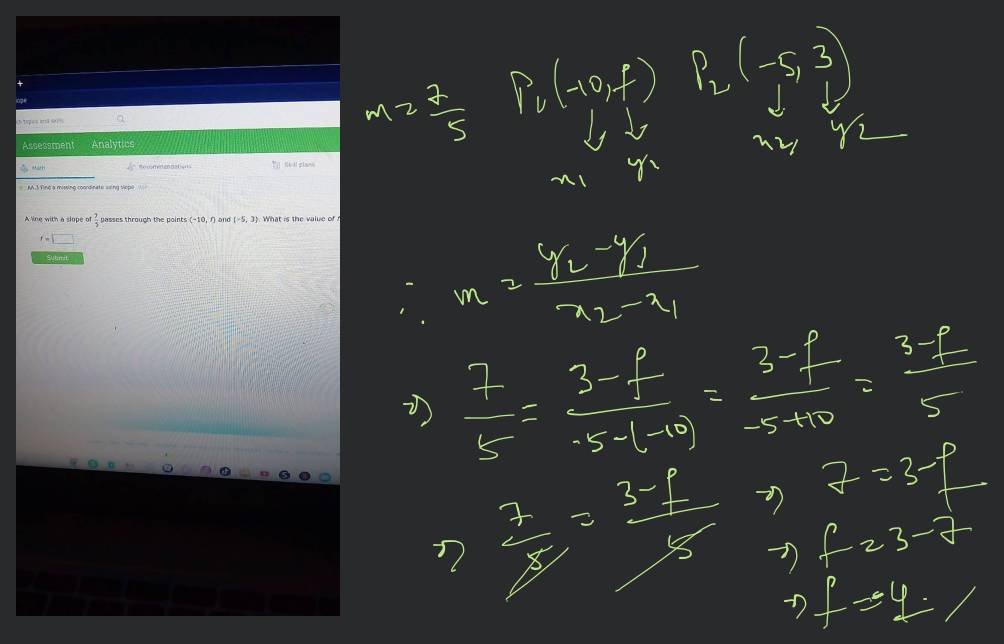 Assessment Analytics
Math Recommendations Skill plans
AA.3 Find a missing coordinate using slope
A line with a slope of 7/5 passes through the points (-10, f) and (-5, 3). What is the value of
f =
Submit
m = 7/5 P₁ (-10, f) P₂ (-5, 3)
x₁ y₁ x₂, y₂
∴ m = (y₂ - y₁)/(x₂ - x₁)
⇒ 7/5 = (3-f)/(-5-(-10)) = (3-f)/(-5+10) = (3-f)/5
⇒ 7/5 = (3-f)/5
⇒ 7 = 3-f
⇒ f = 3-7
⇒ f = 4.